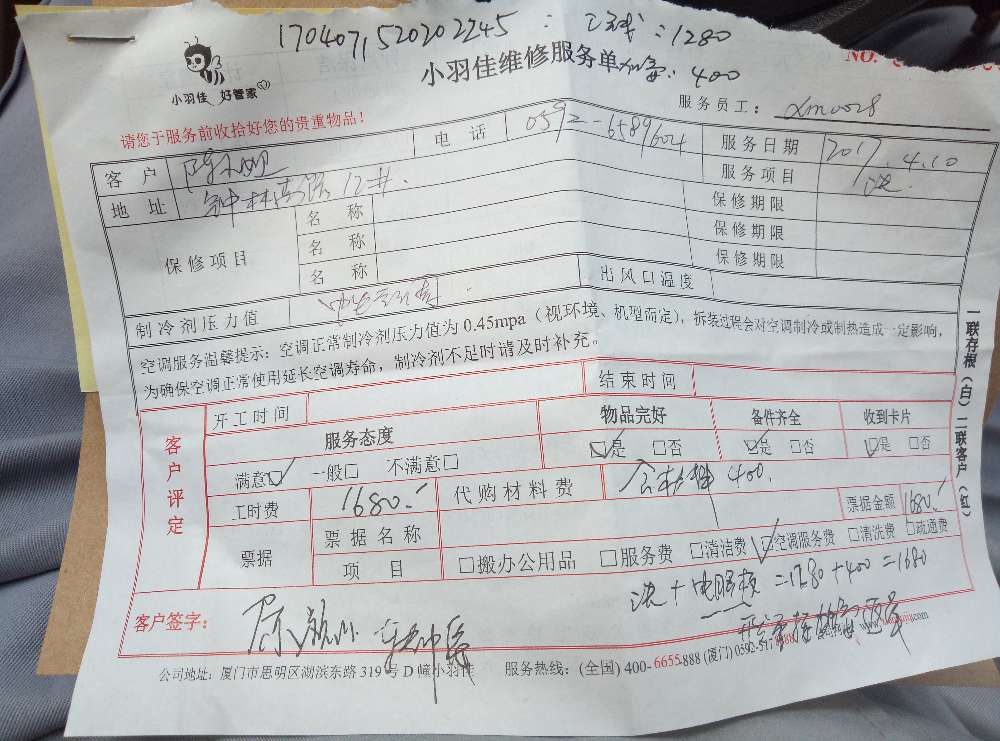 170407152020 2245:
1280
NO.
小羽佳 好管家
小羽佳维修服务单 400
服务员工: xm0028
请您于服务前收拾好您的贵重物品!
客户 电话 0592-6589604 服务日期 2017.4.10
地址 钟林南路12# 服务项目
保修项目 名称 保修期限
名称 保修期限
名称 保修期限
制冷剂压力值 出风口温度
空调服务温馨提示:空调正常制冷剂压力值为0.45mpa(视环境、机型而定),拆装过程会对空调制冷或制热造成一定影响,
为确保空调正常使用延长空调寿命,制冷剂不足时请及时补充。
一联存根(白)二联客户(红)
客户评定
开工时间 结束时间
服务态度 物品完好 备件齐全 收到卡片
满意☑ 一般□ 不满意□ ☑是 □否 ☑是 □否 ☑是 □否
工时费 1680. 代购材料费 含材料400. 票据金额 1680.
票据 票据名称
项目 □搬办公用品 □服务费 □清洁费 ☑空调服务费 □清洗费 □疏通费
+电脑板=1280+400=1680
客户签字:
公司地址:厦门市思明区湖滨东路319号D幢小羽佳 服务热线:(全国)400-6655-888(厦门)0592-517